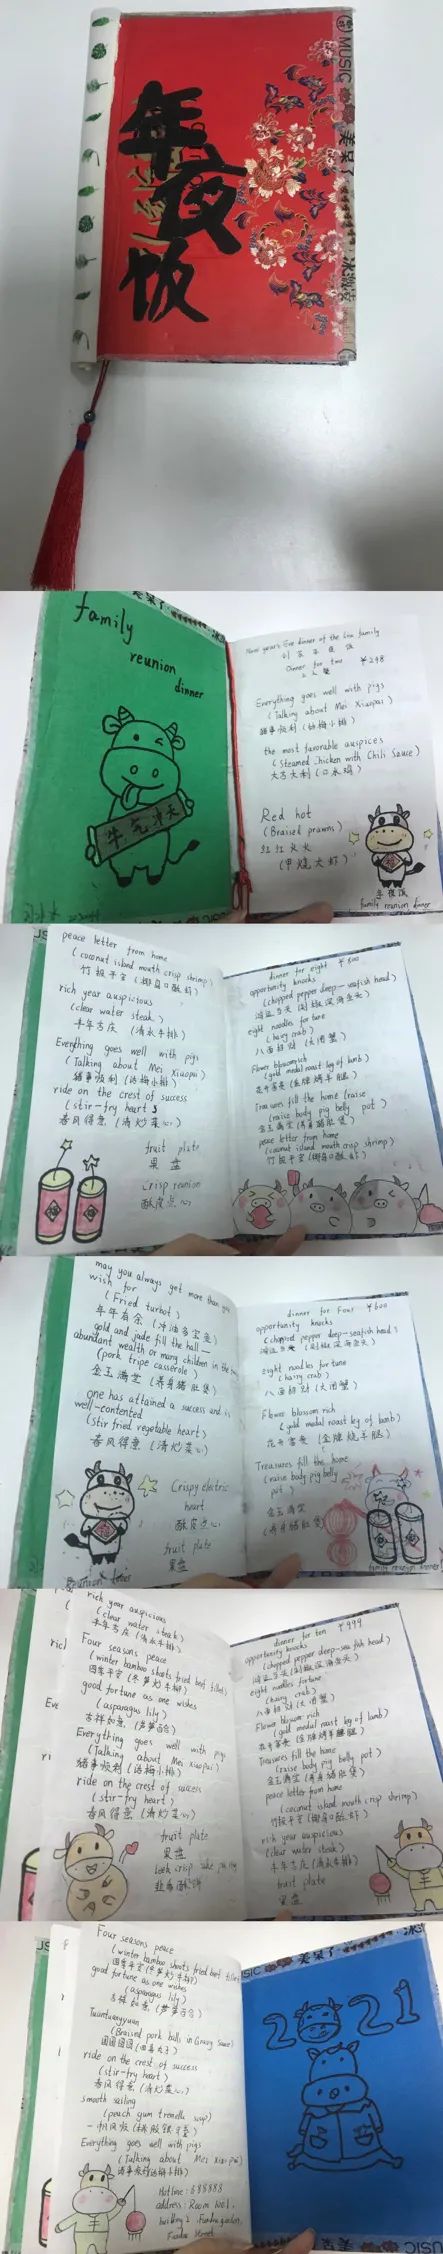 MUSIC
美呆了
冰激凌
年夜饭
美呆了
family
reunion
dinner
牛气冲天
New year's Eve dinner of the Liu family
刘家年夜饭
Dinner for two ¥298
二人餐
Everything goes well with pigs
(Talking about Mei Xiaopai)
猪事顺利(话梅小排)
the most favorable auspices
(Steamed Chicken with Chili Sauce)
大吉大利(口水鸡)
Red hot
(Braised prawns)
红红火火
(甲烧大虾)
福
年夜饭
family reunion dinner
peace letter from home
(coconut island mouth crisp shrimp)
竹报平安(椰岛口酥虾)
rich year auspicious
(clear water steak)
丰年吉庆(清水牛排)
Everything goes well with pigs
(Talking about Mei Xiaopai)
猪事顺利(话梅小排)
ride on the crest of success
(stir-fry hearts)
春风得意(清炒菜心)
fruit plate
果盘
Crisp reunion
酥皮点心
福
福
dinner for eight ¥800
opportunity knocks
(chopped pepper deep-seafish head)
鸿运当头(剁椒深海鱼头)
eight noodles for tune
(hairy crab)
八面招财(大闸蟹)
Flower blossomrich
(gold medal roast leg of lamb)
花开富贵(金牌烤羊腿)
Treasures fill the home (raise
(raise body pig belly pot)
金玉满堂(养身猪肚煲)
peace letter from home
(coconut island mouth crisp shrimp)
竹报平安(椰岛口酥虾)
may you always get more than you
wish for
(Fried turbot)
年年有余(冲油多宝鱼)
gold and jade fill the hall—
abundant wealth or many children in the
(pork tripe casserole)
金玉满堂(养身猪肚煲)
one has attained a success and is
well-contented
(stir fried vegetable heart)
春风得意(清炒菜心)
Crispy electric
heart
酥皮点心
fruit plate
果盘
福
reunion dinner
dinner for Four ¥600
opportunity knocks
(chopped pepper deep-seafish head)
鸿运当头(剁椒深海鱼头)
eight noodles fortune
(hairy crab)
八面招财(大闸蟹)
Flower blossom rich
(gold medal roast leg of lamb)
花开富贵(金牌烤羊腿)
Treasures fill the home
(raise body pig belly
pot)
金玉满堂
(养身猪肚煲)
family reunion dinner
rich year auspicious
(clear water steak)
丰年吉庆(清水牛排)
Four seasons peace
(winter bamboo shoots fried beef fillet)
四季平安(冬笋炒牛柳)
good fortune as one wishes
(asparagus lily)
吉祥如意(芦笋百合)
Everything goes well with pigs
(Talking about Mei xiaopai)
猪事顺利(话梅小排)
ride on the crest of success
(stir-fry heart)
春风得意(清炒菜心)
fruit plate
果盘
Leek crisp
韭菜酥饼
dinner for ten ¥999
opportunity knocks
(chopped pepper deep-sea fish head)
鸿运当头(剁椒深海鱼头)
eight noodles fortune
(hairy crab)
八面招财(大闸蟹)
Flower blossom rich
(gold medal roast leg of lamb)
花开富贵(金牌烤羊腿)
Treasures fill the home
(raise body pig belly pot)
金玉满堂(养身猪肚煲)
peace letter from home
(coconut island mouth crisp shrimp)
竹报平安(椰岛口酥虾)
rich year auspicious
(clear water steak)
丰年吉庆(清水牛排)
fruit plate
果盘
Four seasons peace
(winter bamboo shoots fried beef fillet)
四季平安(冬笋炒牛柳)
good fortune as one wishes
(asparagus lily)
吉祥如意(芦笋百合)
Tuantuanyuan
(Braised pork balls in Gravy Sauce)
团团圆圆(四喜丸子)
ride on the crest of success
(stir-fry heart)
春风得意(清炒菜心)
smooth sailing
(peach gum tremella soup)
一帆风顺(桃胶银耳羹)
Everything goes well with pigs
(Talking about Mei Xiao pai)
猪事顺利(话梅小排)
Hotline: 688888
address: Room 1001,
building 2, Fandng garden,
Fandu Street
牛
美呆了
2021
MUSIC
美呆了